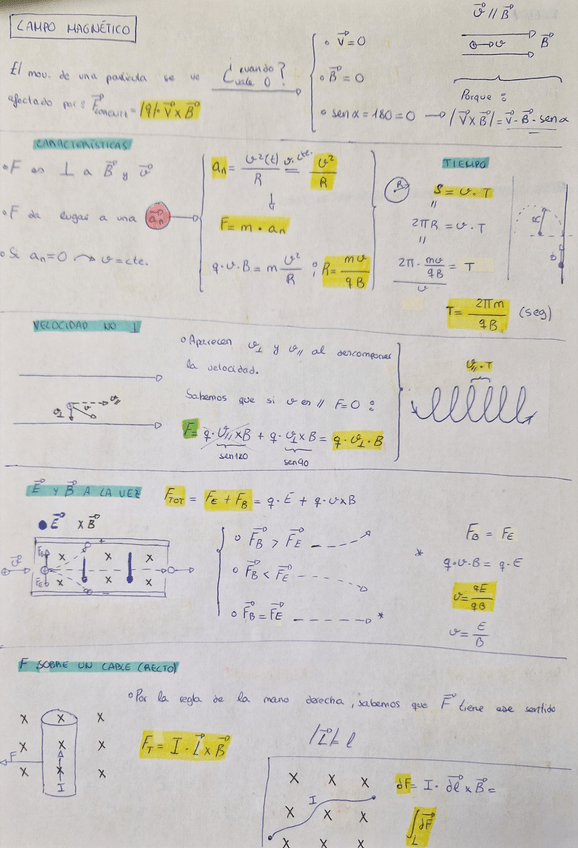 CAMPO MAGNÉTICO
El mov. de una partícula se ve
afectado por: F⃗ = |q|· V⃗ x B⃗
¿cuando vale 0?
○ V⃗ = 0
○ B⃗ = 0
○ sen α = 180 = 0 → |V⃗xB⃗| = V⃗·B⃗·senα
V⃗ // B⃗
v B⃗
Porque:
CARACTERÍSTICAS
○ F es ⊥ a B⃗ y v⃗
○ F da lugar a una a⃗n
○ Si an=0 → v=cte.
an = v²(t)/R = v cte. v²/R
F = m · an
q·v·B = m v²/R ; R = mv/qB
TIEMPO
R
S = v · T
2πR = v · T
2π · mv/qB / v = T
T = 2πm/qB (seg)
R
VELOCIDAD NO ⊥
○ Aparecen v⊥ y v// al descomponer
la velocidad.
Sabemos que si v es // F=0 :
F = q·v//xB + q·v⊥xB = q·v⊥·B
sen180 sen90
v⊥ v v//
v//·T
E⃗ Y B⃗ A LA VEZ
FTOT = FE + FB = q·E + q·vxB
● E⃗ x B⃗
v⃗ FB FE + x x x x x x -
○ F⃗B > F⃗E
○ F⃗B < F⃗E
○ F⃗B = F⃗E *
FB = FE
* q·v·B = q·E
v = qE/qB
v = E/B
F SOBRE UN CABLE (RECTO)
○ Por la regla de la mano derecha, sabemos que F⃗ tiene ese sentido
x x x
F x x x
x x x
I
FT = I · L⃗ x B⃗
|L⃗| = l
x x x
I
x x x
x x x
dF = I · dl⃗ x B⃗ =
∫L dF⃗